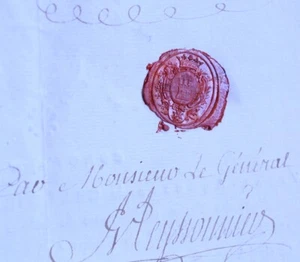 Par Monsieur Le Général
Peyssonnié